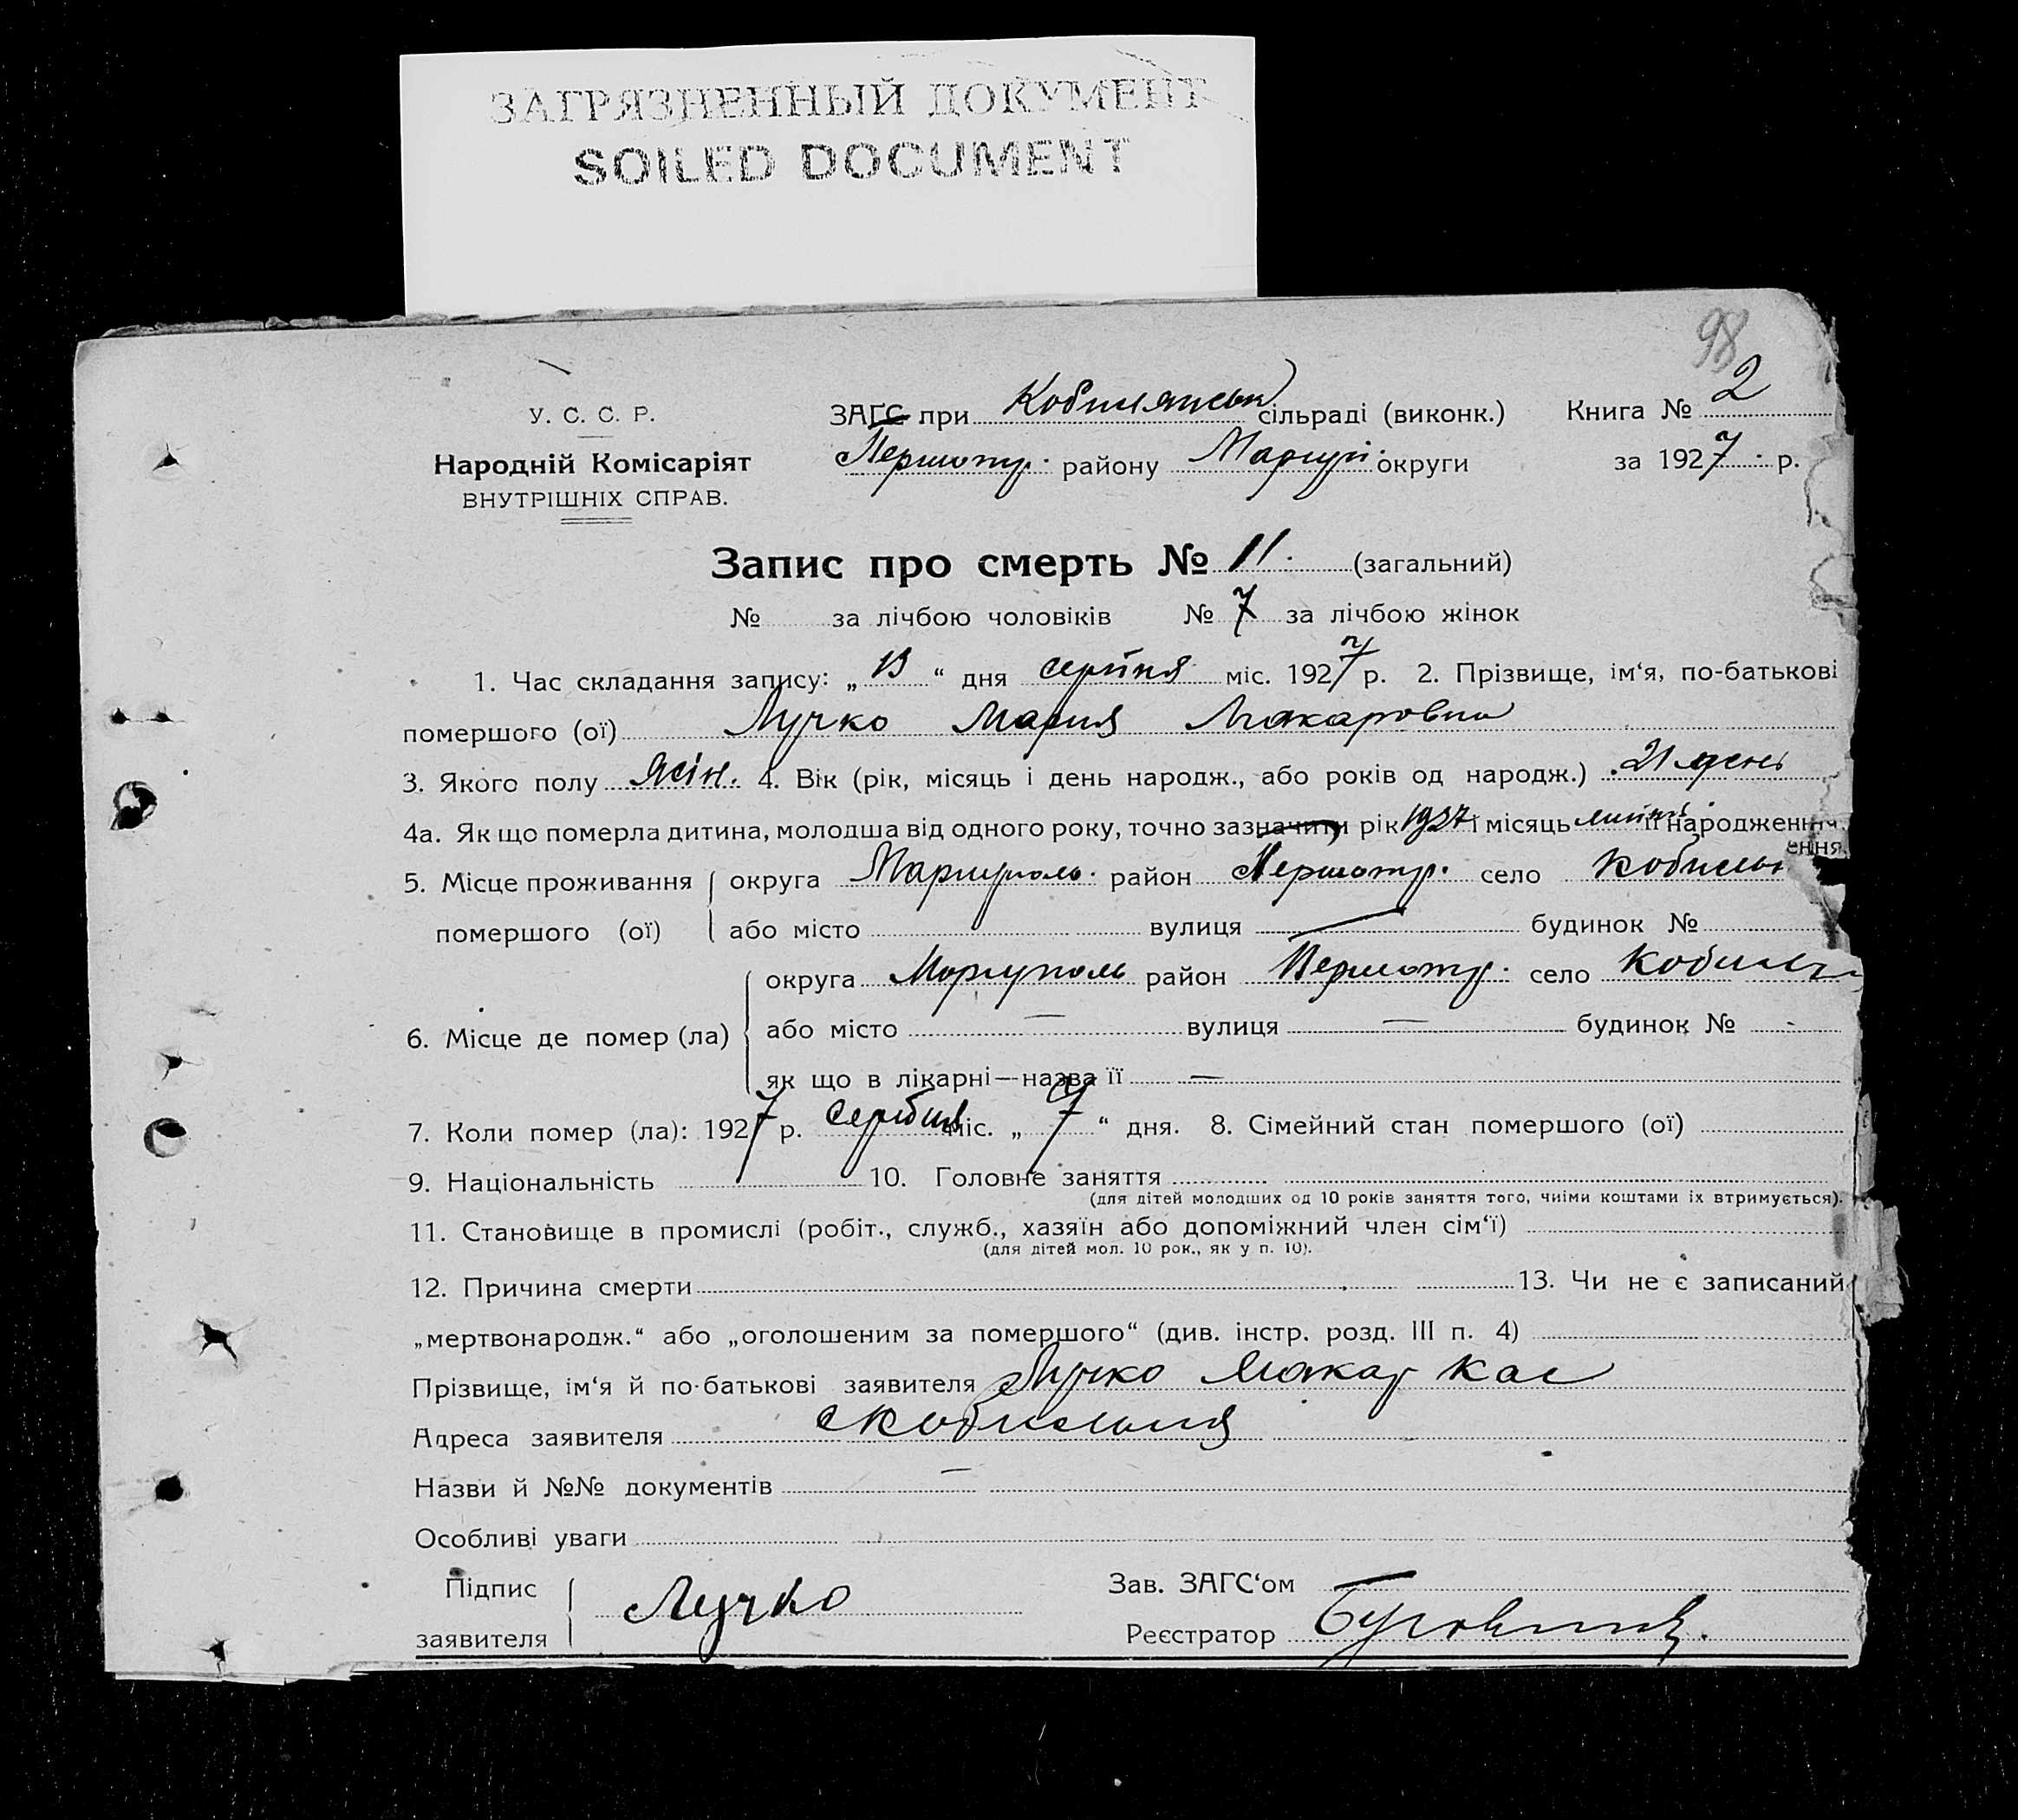 ЗАГРЯЗНЕННЫЙ ДОКУМЕНТ
SOILED DOCUMENT
98
У. С. С. Р.
Народній Комісаріят
ВНУТРІШНІХ СПРАВ.
ЗАГС при Кобилянськ сільраді (виконк.)
Першотр. району Маріуп. округи
Книга № 2
за 1927 р.
Запис про смерть № 11. (загальний)
№ за лічбою чоловіків № 7 за лічбою жінок
1. Час складання запису: „13“ дня серпня міс. 1927 р. 2. Прізвище, ім‘я, по-батькові
помершого (ої) Лучко Мария Макаровна
3. Якого полу жін. 4. Вік (рік, місяць і день народж., або років од народж.) 21 день
4а. Як що померла дитина, молодша від одного року, точно зазначити рік 1927 і місяць її народження.
ення.
5. Місце проживання округа Мариуполь. район Першотр. село
помершого (ої) або місто вулиця — будинок №
6. Місце де помер (ла) округа Мариуполь район Першотр. село
або місто — вулиця — будинок № -
як що в лікарні—назва її —
7. Коли помер (ла): 1927 р. міс. „7“ дня. 8. Сімейний стан помершого (ої)
9. Національність 10. Головне заняття
(для дітей молодших од 10 років заняття того, чиїми коштами їх втримується).
11. Становище в промислі (робіт., служб., хазяїн або допоміжний член сім‘ї)
(для дітей мол. 10 рок., як у п. 10).
12. Причина смерти 13. Чи не є записаний
„мертвонародж.“ або „оголошеним за помершого“ (див. інстр. розд. III п. 4)
Прізвище, ім‘я й по-батькові заявителя Лучко Макар Кас
Адреса заявителя
Назви й №№ документів —
Особливі уваги
Підпис заявителя Лучко
Зав. ЗАГС‘ом —
Реєстратор